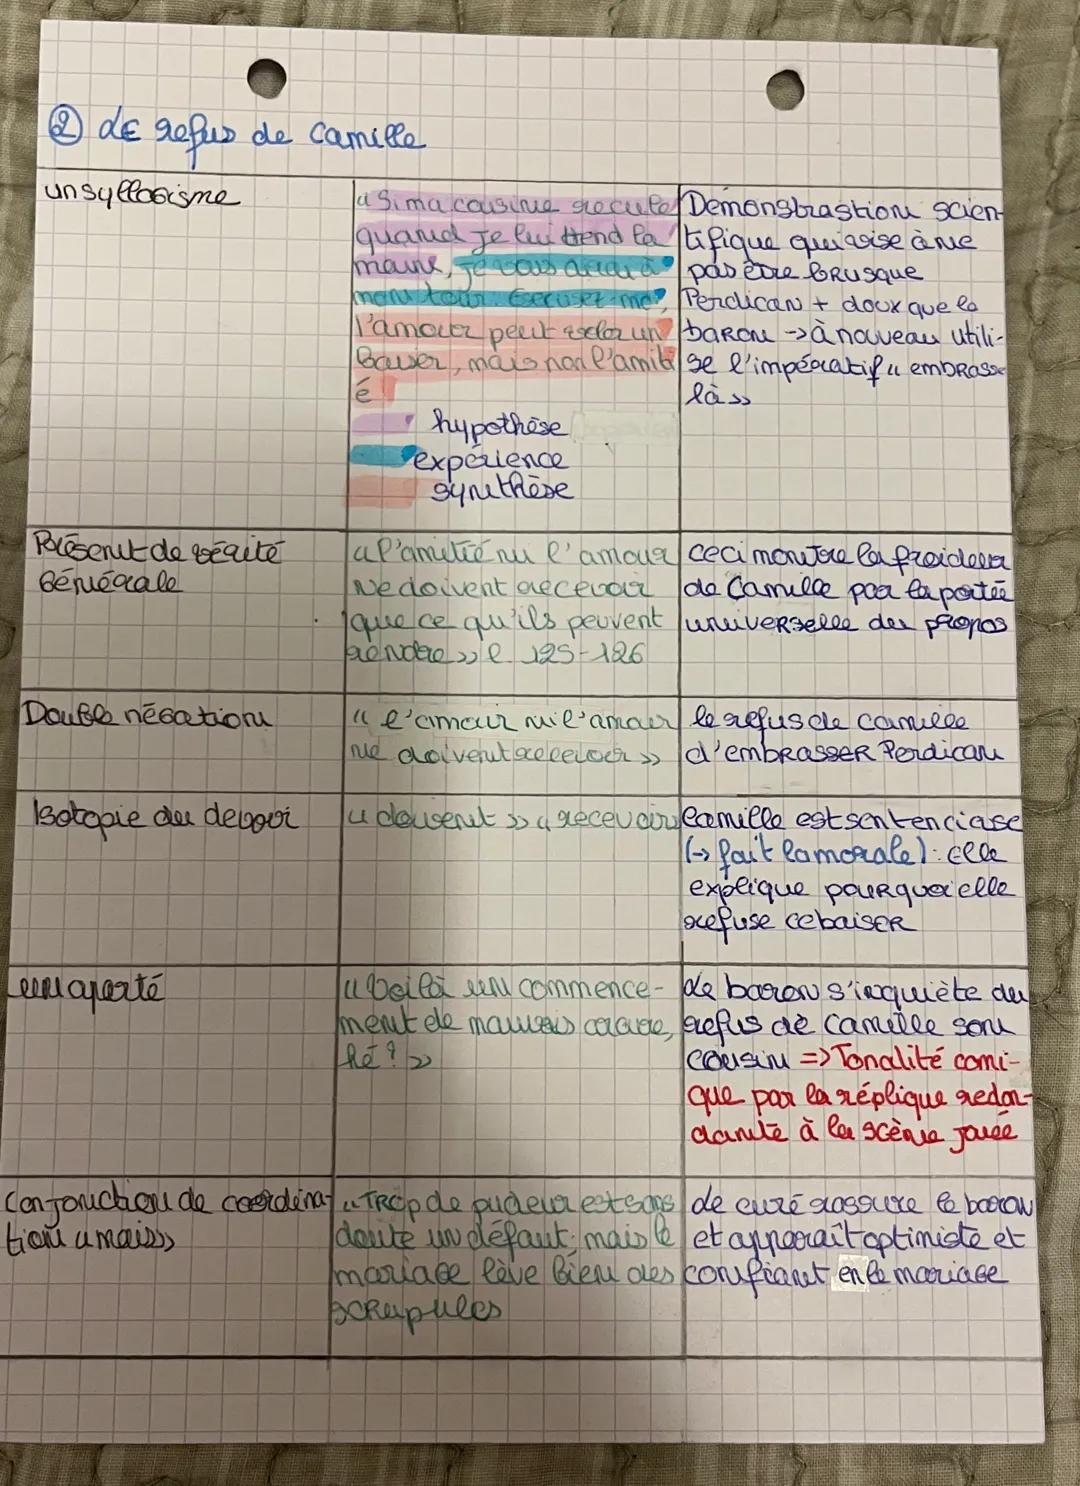 ② LE refus de Camille
un syllogisme
« Si ma cousine recule
quand je lui tend la
main, je vous dirai à
mon tour Excusez-moi,
l'amour peut voler un
baiser, mais non l'amiti
é
hypothèse
expérience
synthèse
Démonstrastion scien-
tifique qui vise à ne
pas être brusque
Perdican + doux que le
baron -> à nouveau utili-
se l'impératif « embrasse
là »
Présent de vérité
générale
« l'amitié ni l'amour
ne doivent recevoir
que ce qu'ils peuvent
rendre » l. 125-126
ceci montre la froideur
de Camille par la portée
universelle du propos
Double négation
« l'amour ni l'amour
ne doivent recevoir »
le refus de Camille
d'embrasser Perdican
Isotopie du devoir
« doivent » « recevoir
Camille est sentenciase
(-> fait la morale) : Elle
explique pourquoi elle
refuse ce baiser
un aparté
« Voilà un commence-
ment de mauvais augure,
hé ? »
Le baron s'inquiète du
refus de Camille son
cousin => Tonalité comi-
que par la réplique redon-
dante à la scène jouée
Conjonction de coordina-
tion « mais »
« Trop de pudeur est sans
doute un défaut; mais le
mariage lève bien des
scrupules
Le curé rassure le baron
et apparaît optimiste et
confiant en le mariage